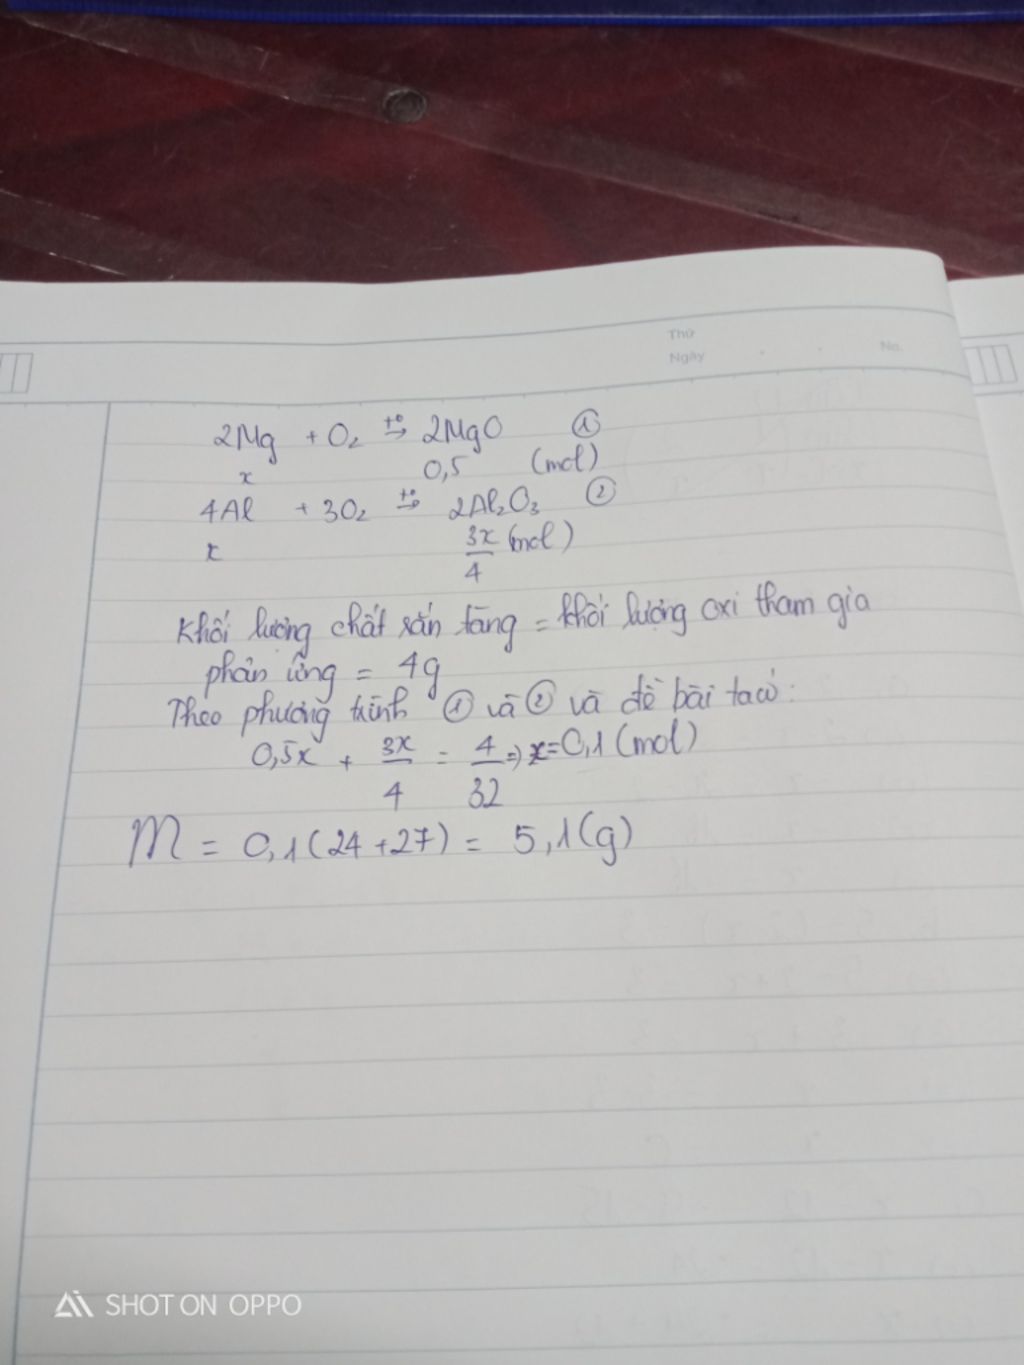 Thứ
Ngày No.
2Mg + O₂ t°→ 2MgO ①
x 0,5 (mol)
4Al + 3O₂ t°→ 2Al₂O₃ ②
x 3x/4 (mol)
Khối lượng chất rắn tăng = khối lượng oxi tham gia
phản ứng = 4g
Theo phương trình ① và ② và đề bài ta có:
0,5x + 3x/4 = 4/32 => x=0,1 (mol)
M = 0,1(24+27) = 5,1(g)
SHOT ON OPPO